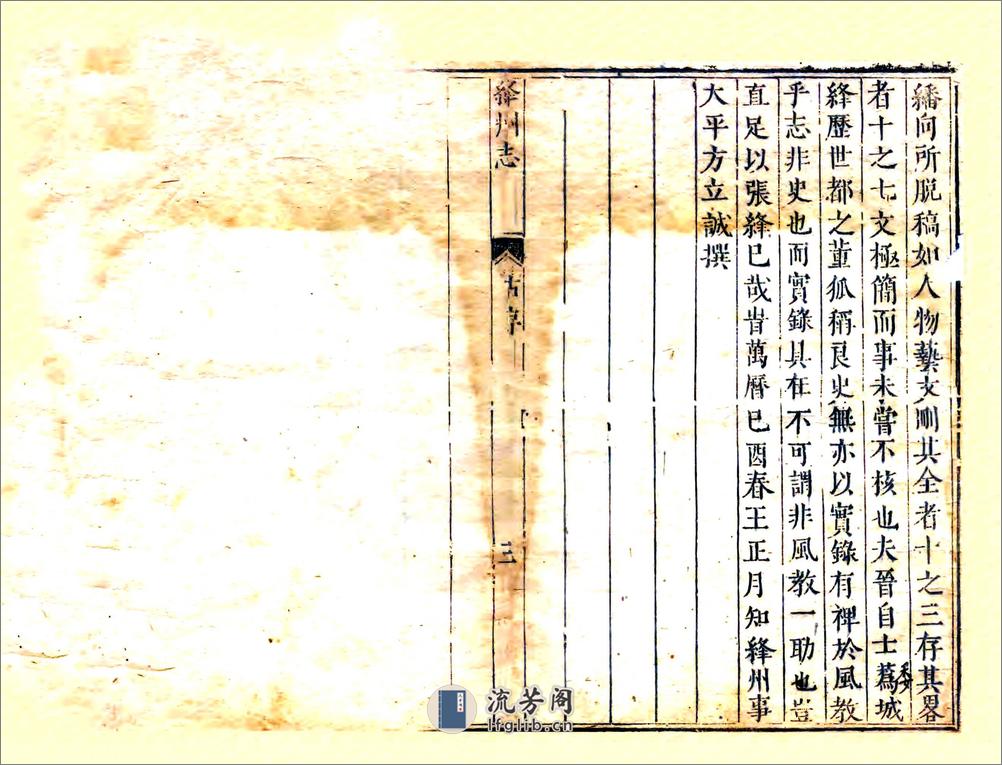 繙向所脫稿如人物藝文刪其全者十之三存其畧
者十之七文極簡而事未嘗不核也夫晉自士蔿城
絳歷世都之董狐稱良史無亦以實錄有裨於風教
乎志非史也而實錄具在不可謂非風教一助也豈
直足以張絳已哉旹萬曆己酉春王正月知絳州事
大平方立誠撰
絳州志 古序 三
流芳阁
lfglib.cn